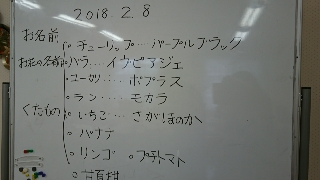 2018.2.8
お名前
。チューリップ‥‥パープルブラック
お花の名前 。バラ‥‥イヴピアジェ
。ユーカリ‥‥ポプラス
。ラン‥‥モカラ
くだもの 。いちご‥‥さがほのか
。バナナ
。リンゴ 。プチトマト